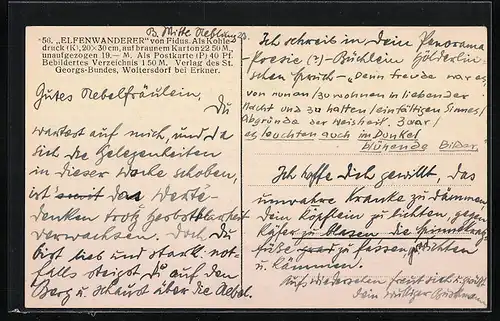 B. Mitte Neblung 23.
56. „ELFENWANDERER" von Fidus. Als Kohle-
druck (K), 200×30 cm, auf braunem Karton 22 50 M.,
unaufgezogen 19.— M. Als Postkarte (P) 40 Pf.
Bebildertes Verzeichnis 1 50 M. Verlag des St.
Georgs-Bundes, Woltersdorf bei Erkner.
Gutes Nebelfräulein,
Du
wartest auf mich, und da
sich die Gelegenheiten
in dieser Woche schoben,
ist somit das Warte-
denken trotz
verwachsen. Doch Du
bist lieb und stark: not-
falls steigst Du auf den
Berg u schaust über die Nebel.
Ich schreib in Dein Panorama-
Poesie (?)-Büchlein Hölderlin-
schen Spruch: Denn freude war es
von nun an / zu wohnen in liebender
Nacht und zu halten / einfältigen Sinnes /
Abgründe der Weisheit. Zwar /
es leuchten auch im Dunkel
blühende Bilder.
Ich hoffe Dich gewillt, das
unwahre Kranke zu dämmen
Dein Köpflein zu lichten, gegen
Käfer zu blasen
zu fassen, zu richten
u. kämmen.
Aufs Wiedersehen freut sich u. grüßt
Dein